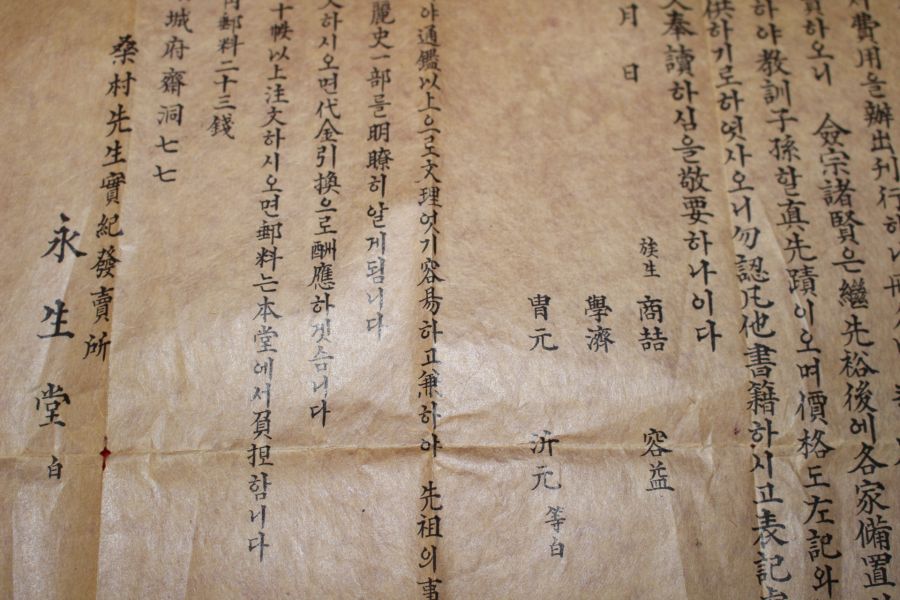 費用을辦出刊行하니
하오니 僉宗諸賢은繼先裕後에各家備置
하야敎訓子孫할眞先蹟이오며價格도左記와
供하기로하엿사오니勿認凡他書籍하시고表記
奉讀하심을敬要하나이다
月 日
族生 商喆 容益
學濟
胄元 沂元 等白
야通鑑以上으로文理엿기容易하고兼하야 先祖의事
麗史一部를明瞭히알게됨니다
하시오면代金引換으로酬應하겟슴니다
十帙以上注文하시오면郵料는本堂에서負担함니다
郵料二十三錢
城府齋洞七七
桑村先生實紀發賣所
永生堂 白